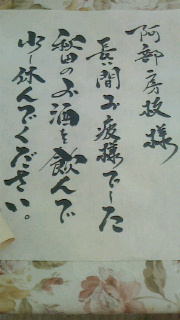 阿部房枝様
長い間お疲様でした
秋田のお酒を飲んで
少し休んでください。